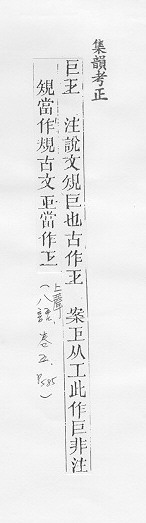 集韻考正
巨𢀑 注說文䂓巨也古作𢀑 案𢀑从工此作巨非注
䂓當作規古文𢀑當作𢀑
(上聲
八語 卷五, P585)